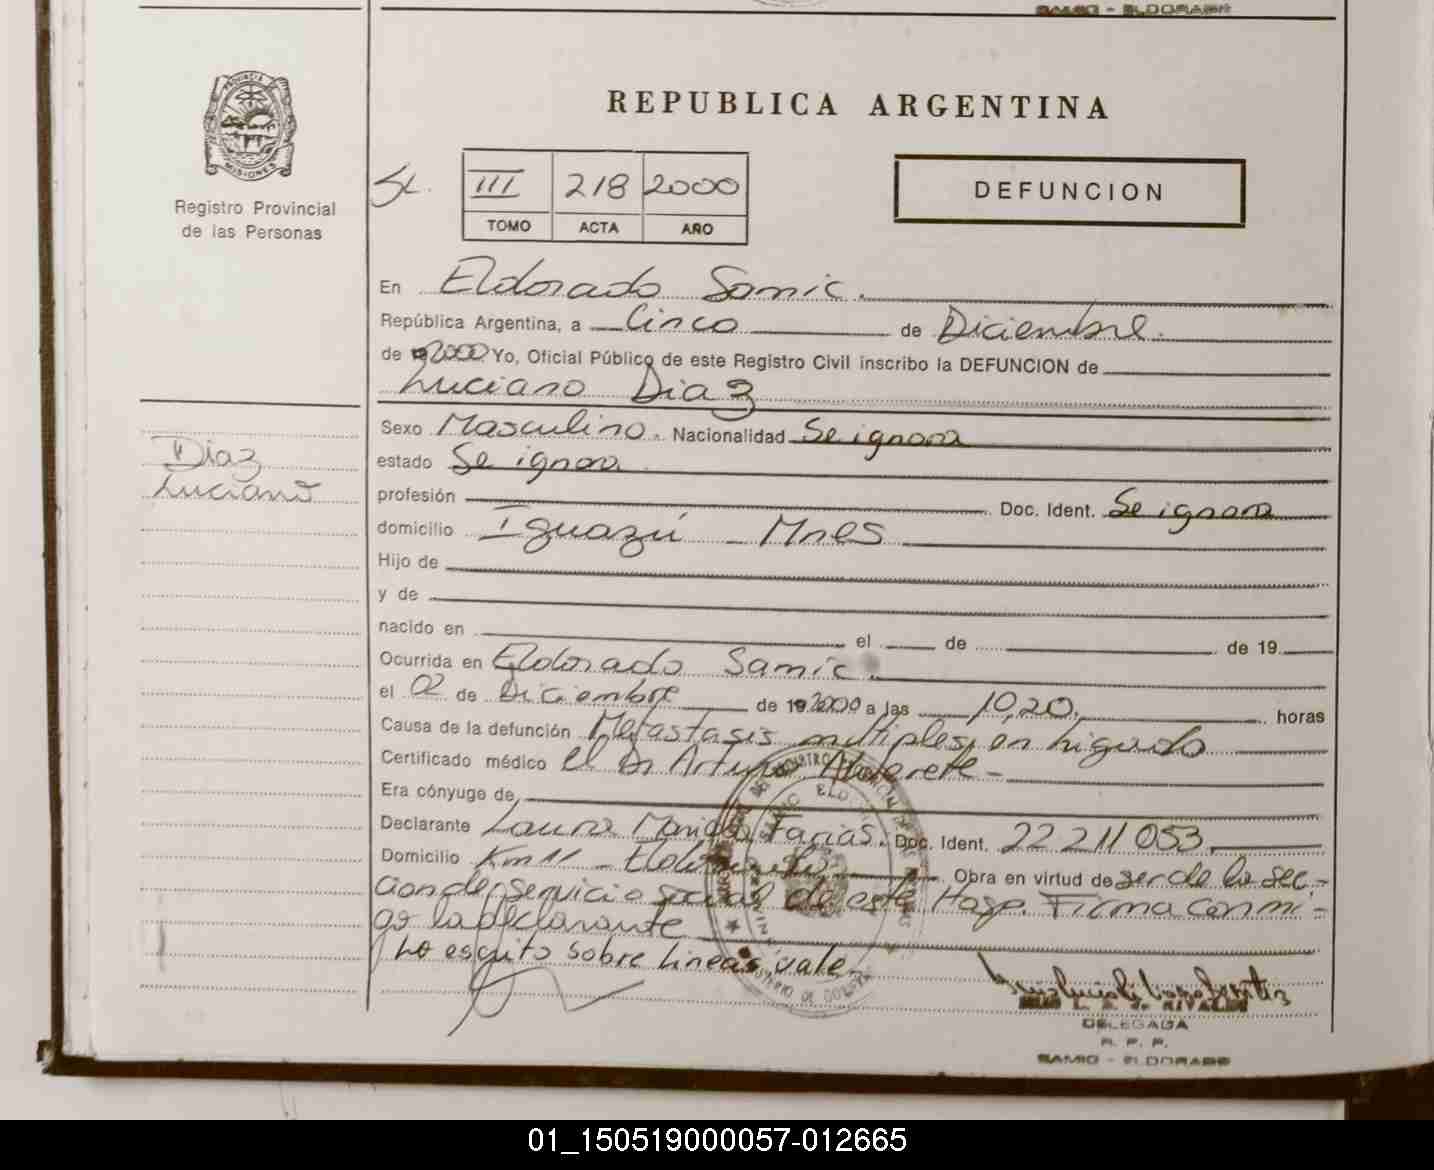 SAMIC - ELDORADO
PROVINCIA DE
MISIONES
REPUBLICA ARGENTINA
III 218 2000
TOMO ACTA AÑO
DEFUNCION
Registro Provincial
de las Personas
En Eldorado Samic.
República Argentina, a Cinco de Diciembre.
de 2000 Yo, Oficial Público de este Registro Civil inscribo la DEFUNCION de
Luciano Diaz
Sexo Masculino. Nacionalidad Se ignora
estado Se ignora
Diaz
Luciano
profesión Doc. Ident. Se ignora
domicilio Iguazú - Mnes
Hijo de
y de
nacido en el de de 19
Ocurrida en Eldorado Samic.
el 02 de Diciembre de 19 2000 a las 10,20. horas
Causa de la defunción Metastasis multiples, en higado
Certificado médico el Dr Arturo
Era cónyuge de
Declarante Laura Farias. Doc. Ident. 22 211 053
Domicilio Km 11 - Eldorado Obra en virtud de ser de la sec-
cion del servicio social de este Hosp. Firma conmi-
go la declarante
Lo escrito sobre lineas, vale
DELEGADA
R. P. P.
SAMIC - ELDORADO
01_150519000057-012665